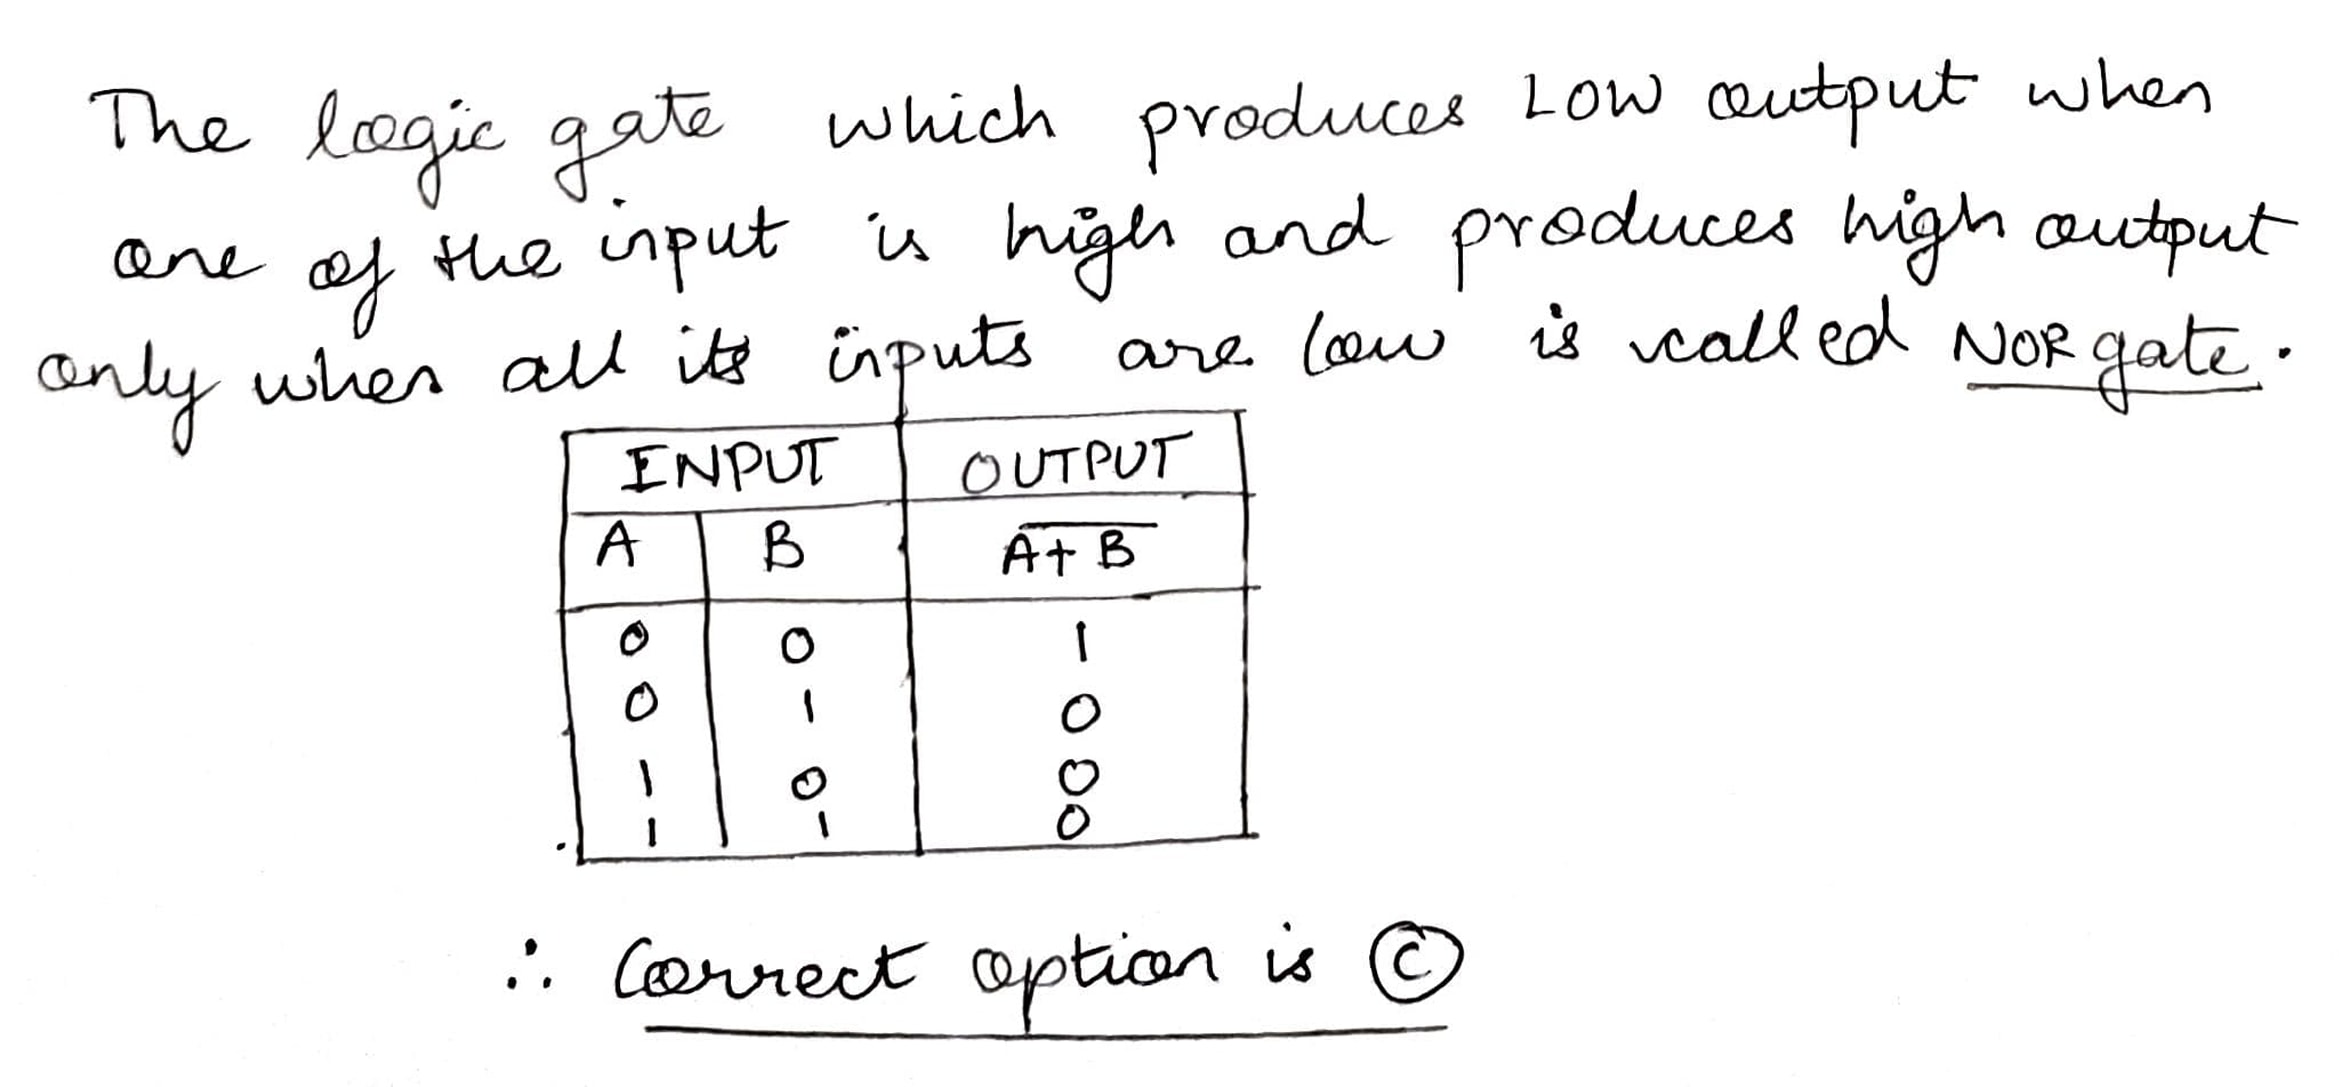 The logic gate which produces LOW output when
one of the input is high and produces high output
only when all its inputs are low is called NOR gate.
INPUT OUTPUT
A B A+B̅
0 0 1
0 1 0
1 0 0
1 1 0
∴ Correct option is Ⓒ